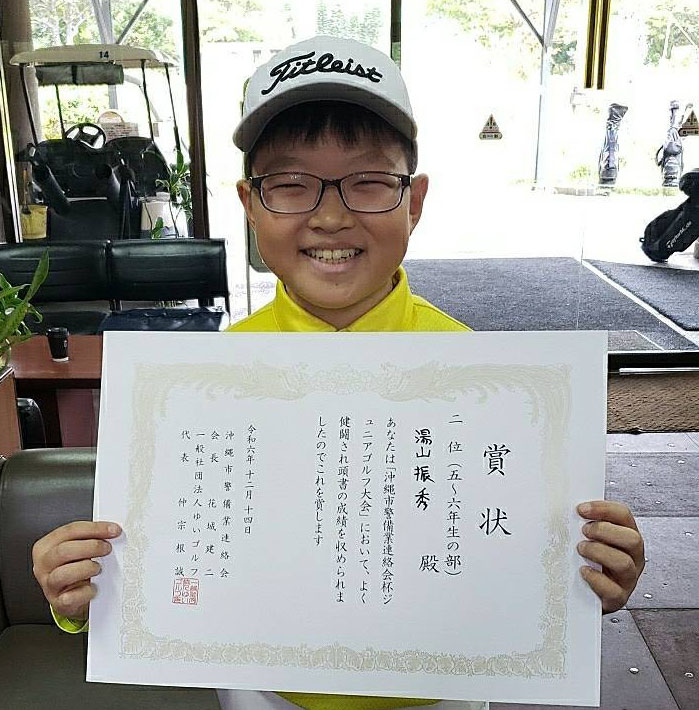 14
Titleist
賞状
二位（五～六年生の部）
湯山振秀 殿
あなたは「沖縄市警備業連絡会杯ジ
ュニアゴルフ大会」において、よく
健闘され頭書の成績を収められま
したのでこれを賞します
令和六年 十二月 十四日
沖縄市警備業連絡会
会長 花城建二
一般社団法人ゆいゴルフ
代表 仲宗根誠